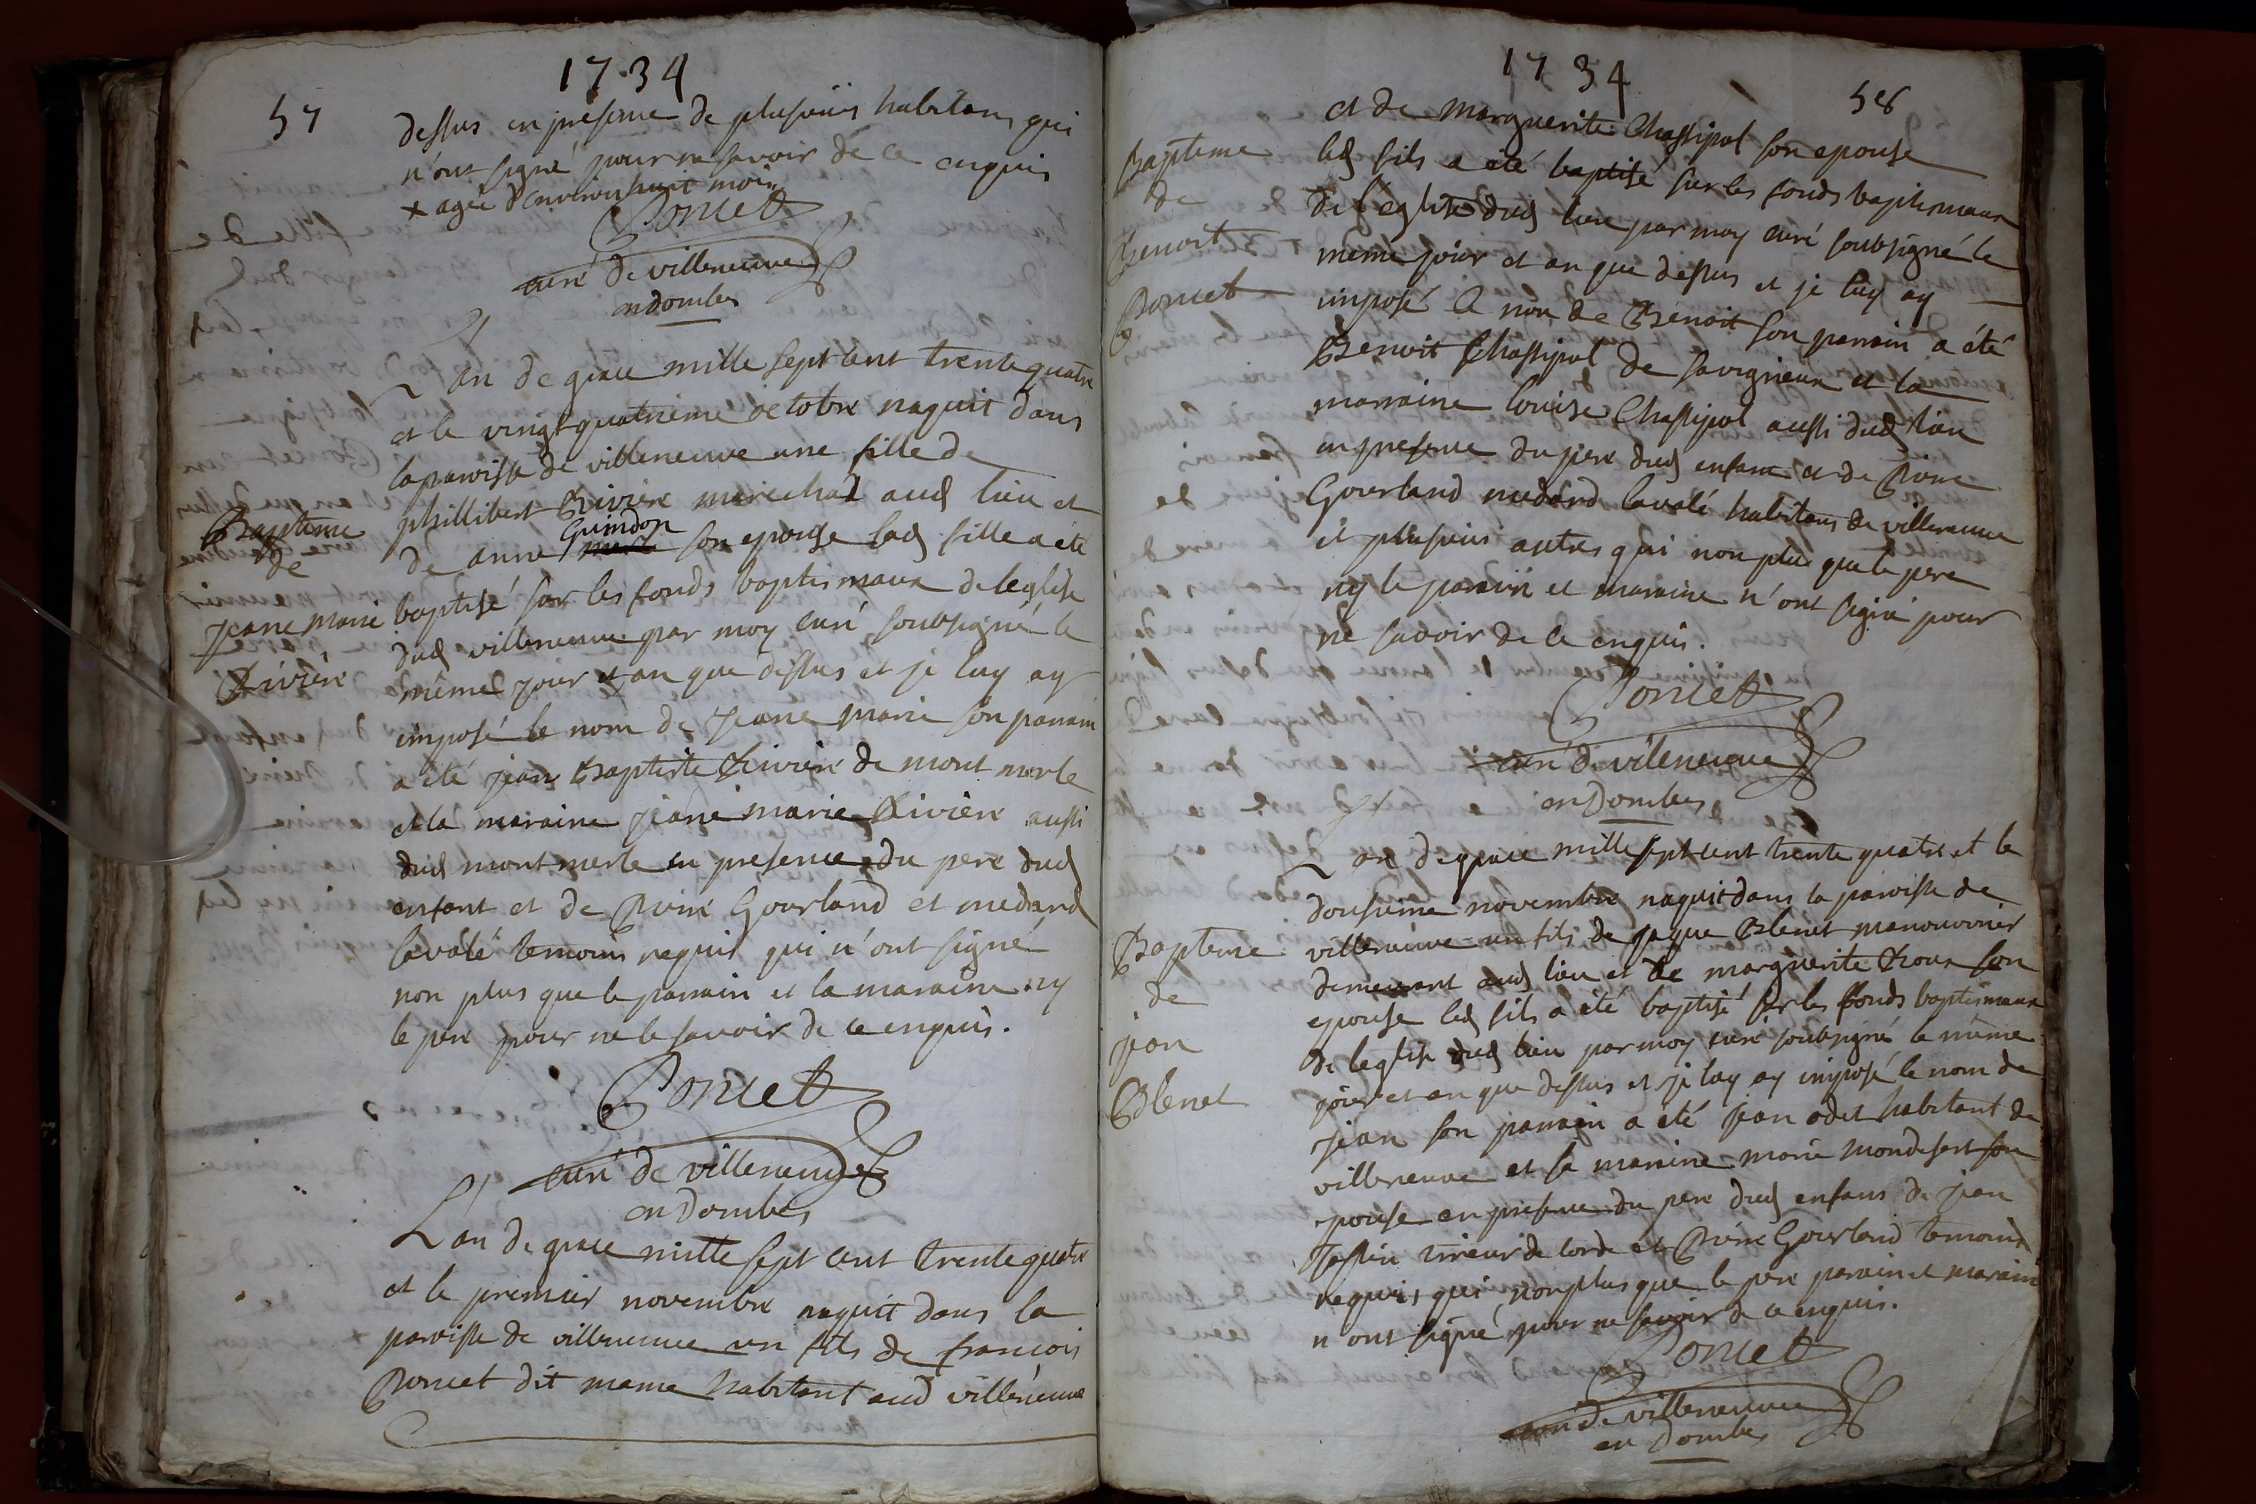 1734
57
dessus en presence de plusieurs habitans qui
n'ont signé pour ne savoir de ce enquis
+ agée d'environ huit mois
Poncet
curé de villeneuve
en dombes
L'an de grace mille sept cent trente quatre
et le vingt quatrieme octobre naquit dans
la paroisse de villeneuve une fille de
phillibert Riviere marechal aud lieu et
Guindon
de anne son epouse lad fille a été
Bapteme
de
Jeane marie
Riviere
baptisé sur les fonds baptismaux de leglise
dud villeneuve par moy curé soubsigné le
même jour et an que dessus et je luy ay
imposé le nom de Jeane marie son parain
a été jean Baptiste Riviere de mont merle
et la maraine jeane marie Riviere aussi
dud mont merle en presence du pere dud
enfant et de Pierre Gourland et medard
lavalé temoins requis qui n'ont signé
non plus que le parrain et la maraine ny
le pere pour ne le savoir de ce enquis.
Poncet
curé de villeneuve
en Dombes
L'an de grace mille sept cent trente quatre
et le premier novembre naquit dans la
paroisse de villeneuve un fils de francois
Poncet dit mama habitant aud villeneuve
1734
58
et de Marguerite Chassipol son epouse
Bapteme
de
Benoit
Poncet
led fils a été baptisé sur les fonds baptismaux
de l'eglise dud lieu par moy curé soubsigné le
meme jour et an que dessus et je luy ay
imposé le nom de Benoit son parrain a été
Benoit Chassipol de savigneux et la
marraine louise Chassipol aussi dud lieu
en presence du pere dud enfant et de Pierre
Gourland medard lavalé habitans de villeneuve
et plusieurs autres qui non plus que le pere
ny le parain et maraine n'ont signé pour
ne savoir de ce enquis.
Poncet
curé de villeneuve
en Dombes
L'an de grace mille sept cent trente quatre et le
dousieme novembre naquit dans la paroisse de
villeneuve un fils de jaque Blenet manouvrier
Bapteme
de
jean
Blenet
demeurant aud lieu et de marguerite Roux son
epouse led fils a été baptisé sur les fonds baptismaux
de leglise dud lieu par moy curé soubsigné le même
jour et an que dessus et je luy ay imposé le nom de
jean son parrain a été jean odet habitant de
villeneuve et sa maraine marie mondesert son
epouse en presence du pere dud enfans de jean
tireur de corde et Pierre Gourland temoins
requis qui nonplus que le pere parain et marain
n'ont signé pour ne savoir de ce enquis.
Poncet
curé de villeneuve
en Dombes